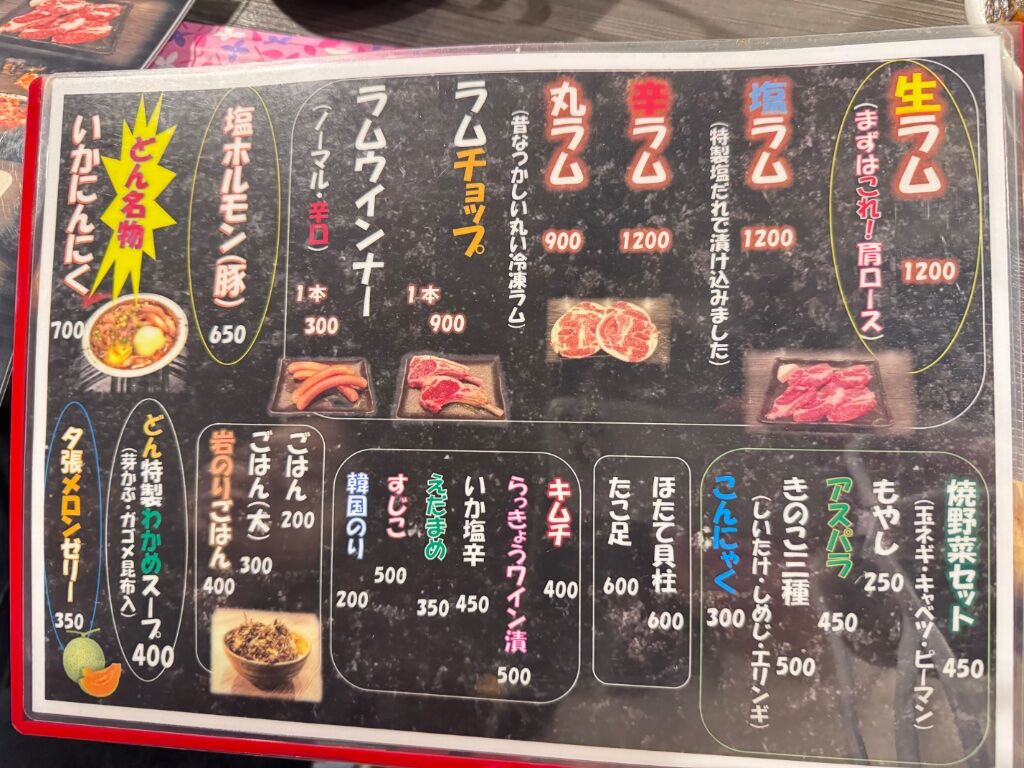 生ラム
(まずはこれ!肩ロース)
1200
塩ラム
(特製塩だれで漬け込みました)
1200
辛ラム
1200
丸ラム
(昔なつかしい丸い冷凍ラム)
900
ラムチョップ
1本
900
ラムウインナー
(ノーマル・辛口)
1本
300
塩ホルモン(豚)
650
どん名物
いかにんにく
700
焼野菜セット
(玉ネギ・キャベツ・ピーマン)
450
もやし
250
アスパラ
450
きのこ三種
(しいたけ・しめじ・エリンギ)
500
こんにゃく
300
ほたて貝柱
600
たこ足
600
キムチ
400
らっきょうワイン漬
500
いか塩辛
450
えだまめ
350
すじこ
500
韓国のり
200
ごはん
200
ごはん(大)
300
岩のりごはん
400
どん特製わかめスープ
(芽かぶ・ガゴメ昆布入)
400
夕張メロンゼリー
350